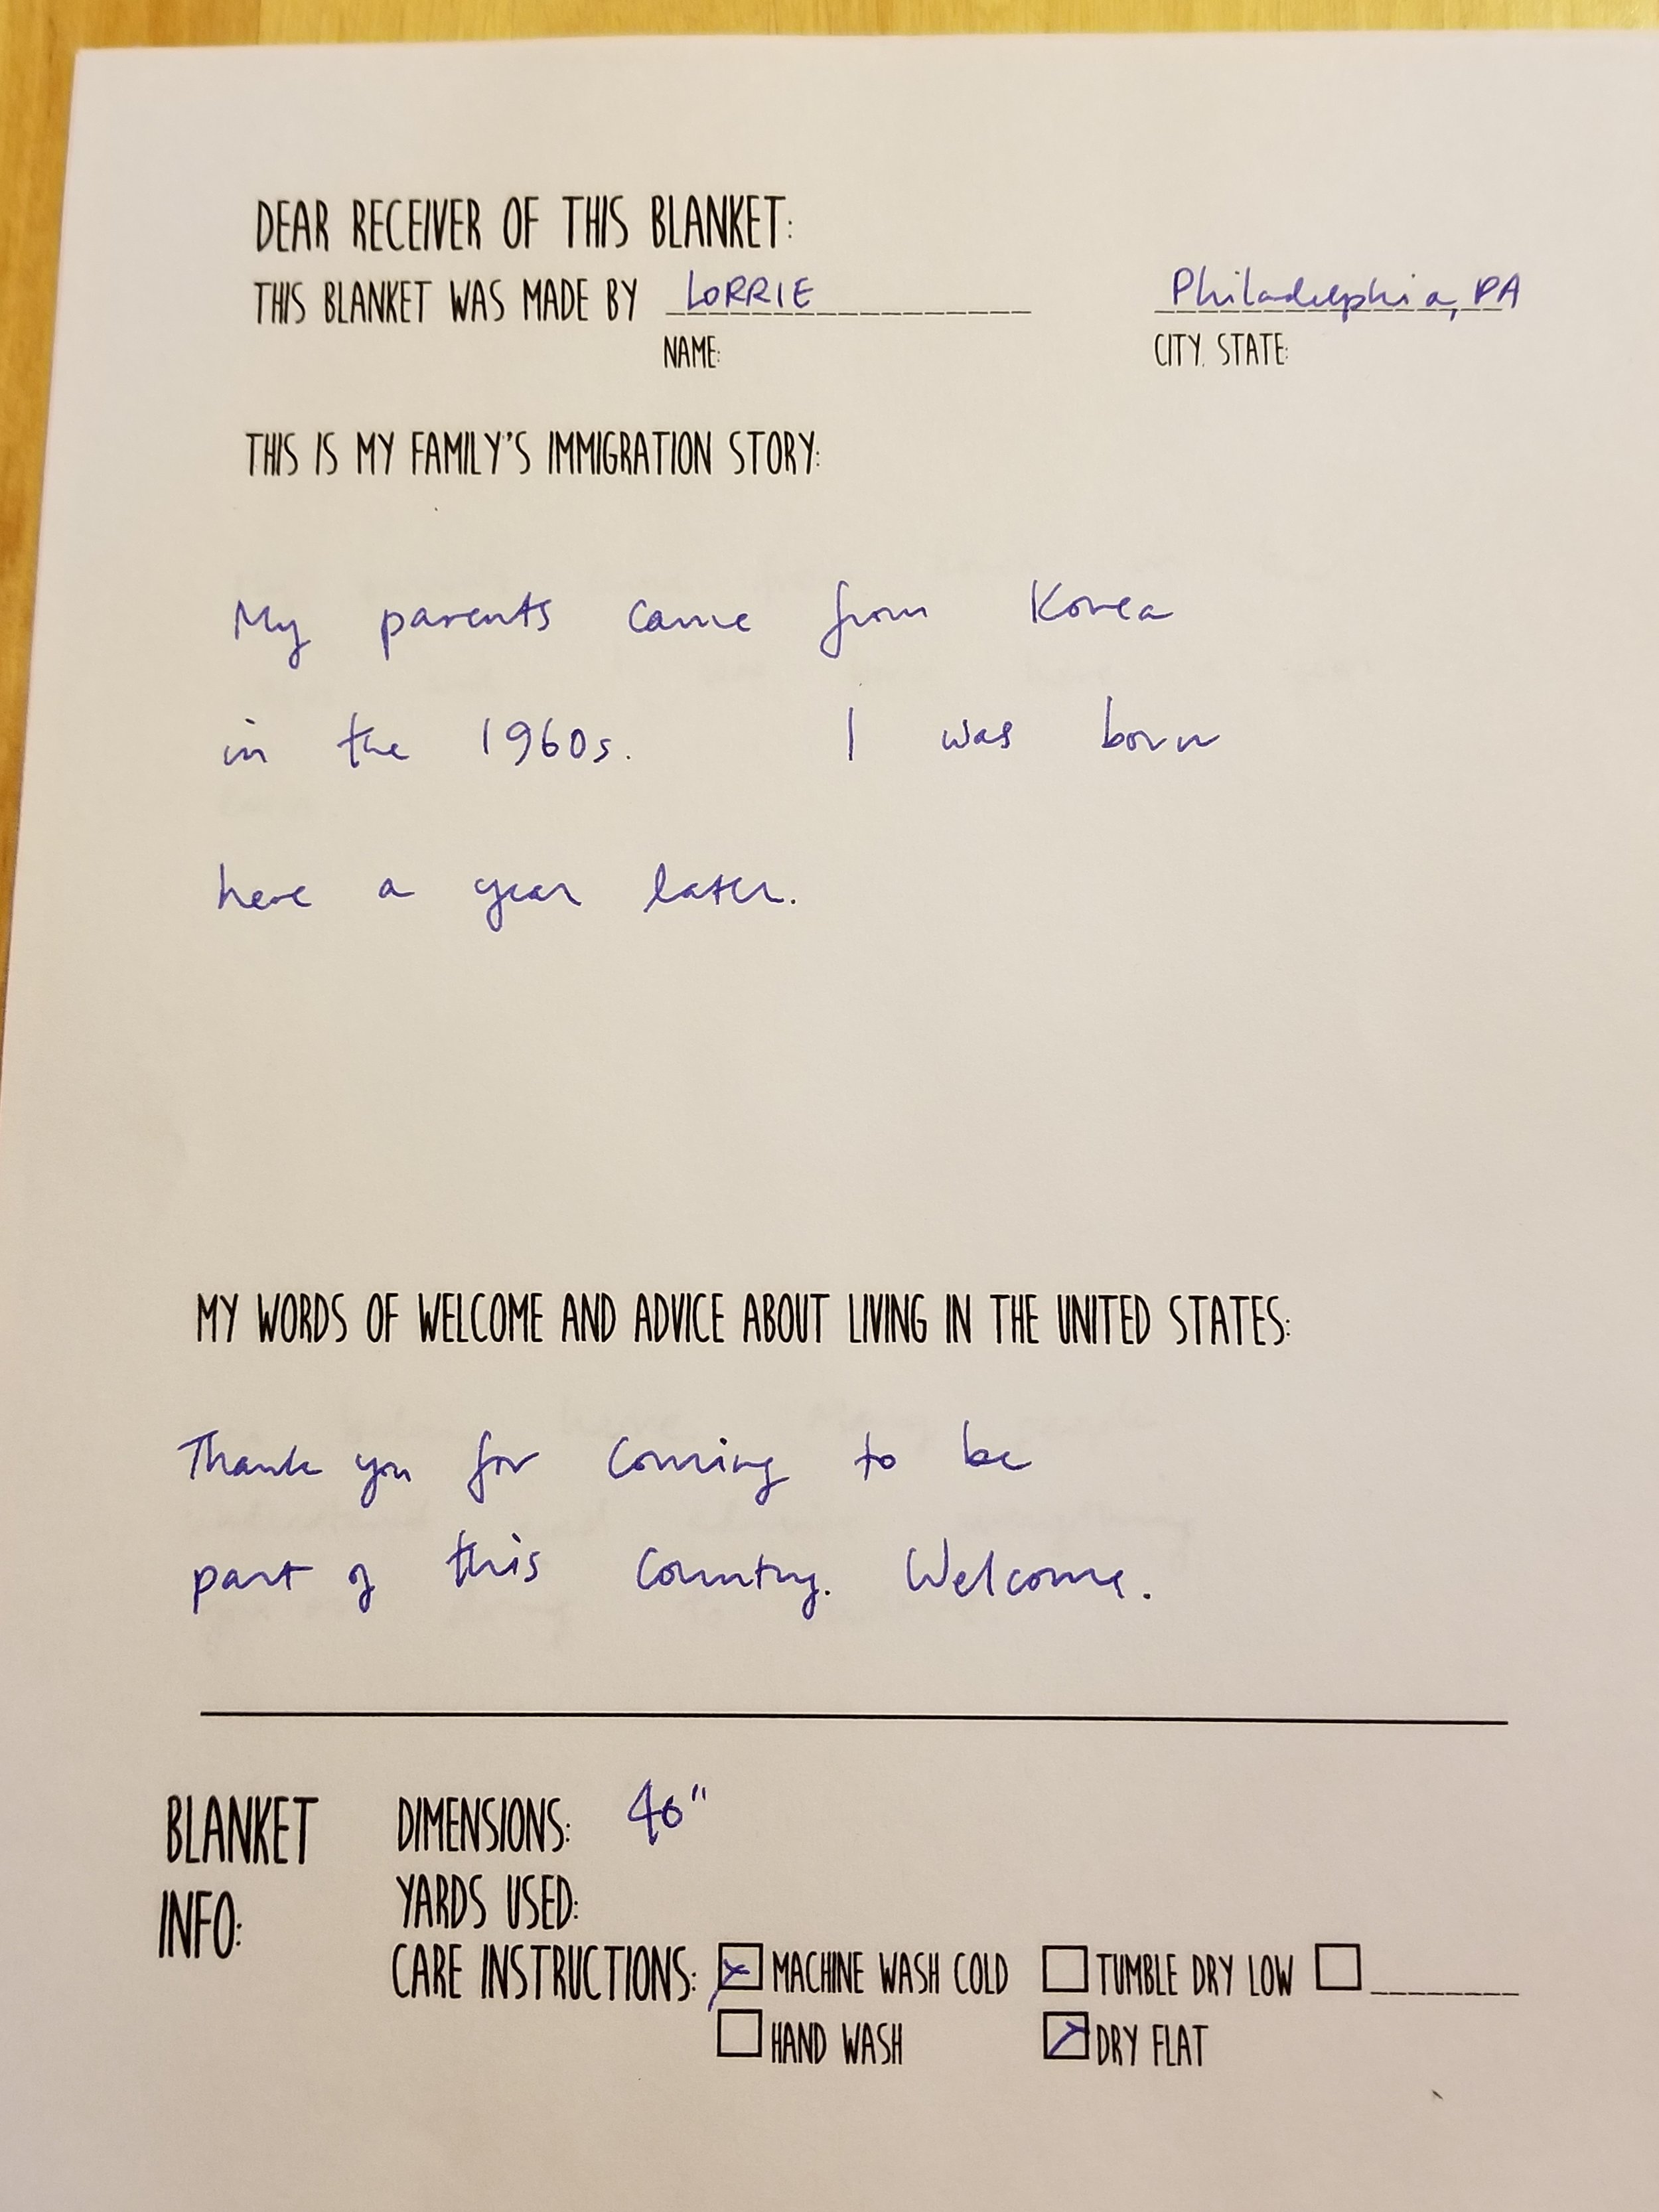 DEAR RECEIVER OF THIS BLANKET:
THIS BLANKET WAS MADE BY LORRIE Philadelphia, PA
NAME: CITY, STATE:
THIS IS MY FAMILY'S IMMIGRATION STORY:
My parents came from Korea
in the 1960s. I was born
here a year later.
MY WORDS OF WELCOME AND ADVICE ABOUT LIVING IN THE UNITED STATES:
Thank you for coming to be
part of this country. Welcome.
BLANKET INFO:
DIMENSIONS: 40"
YARDS USED:
CARE INSTRUCTIONS: MACHINE WASH COLD TUMBLE DRY LOW
HAND WASH DRY FLAT